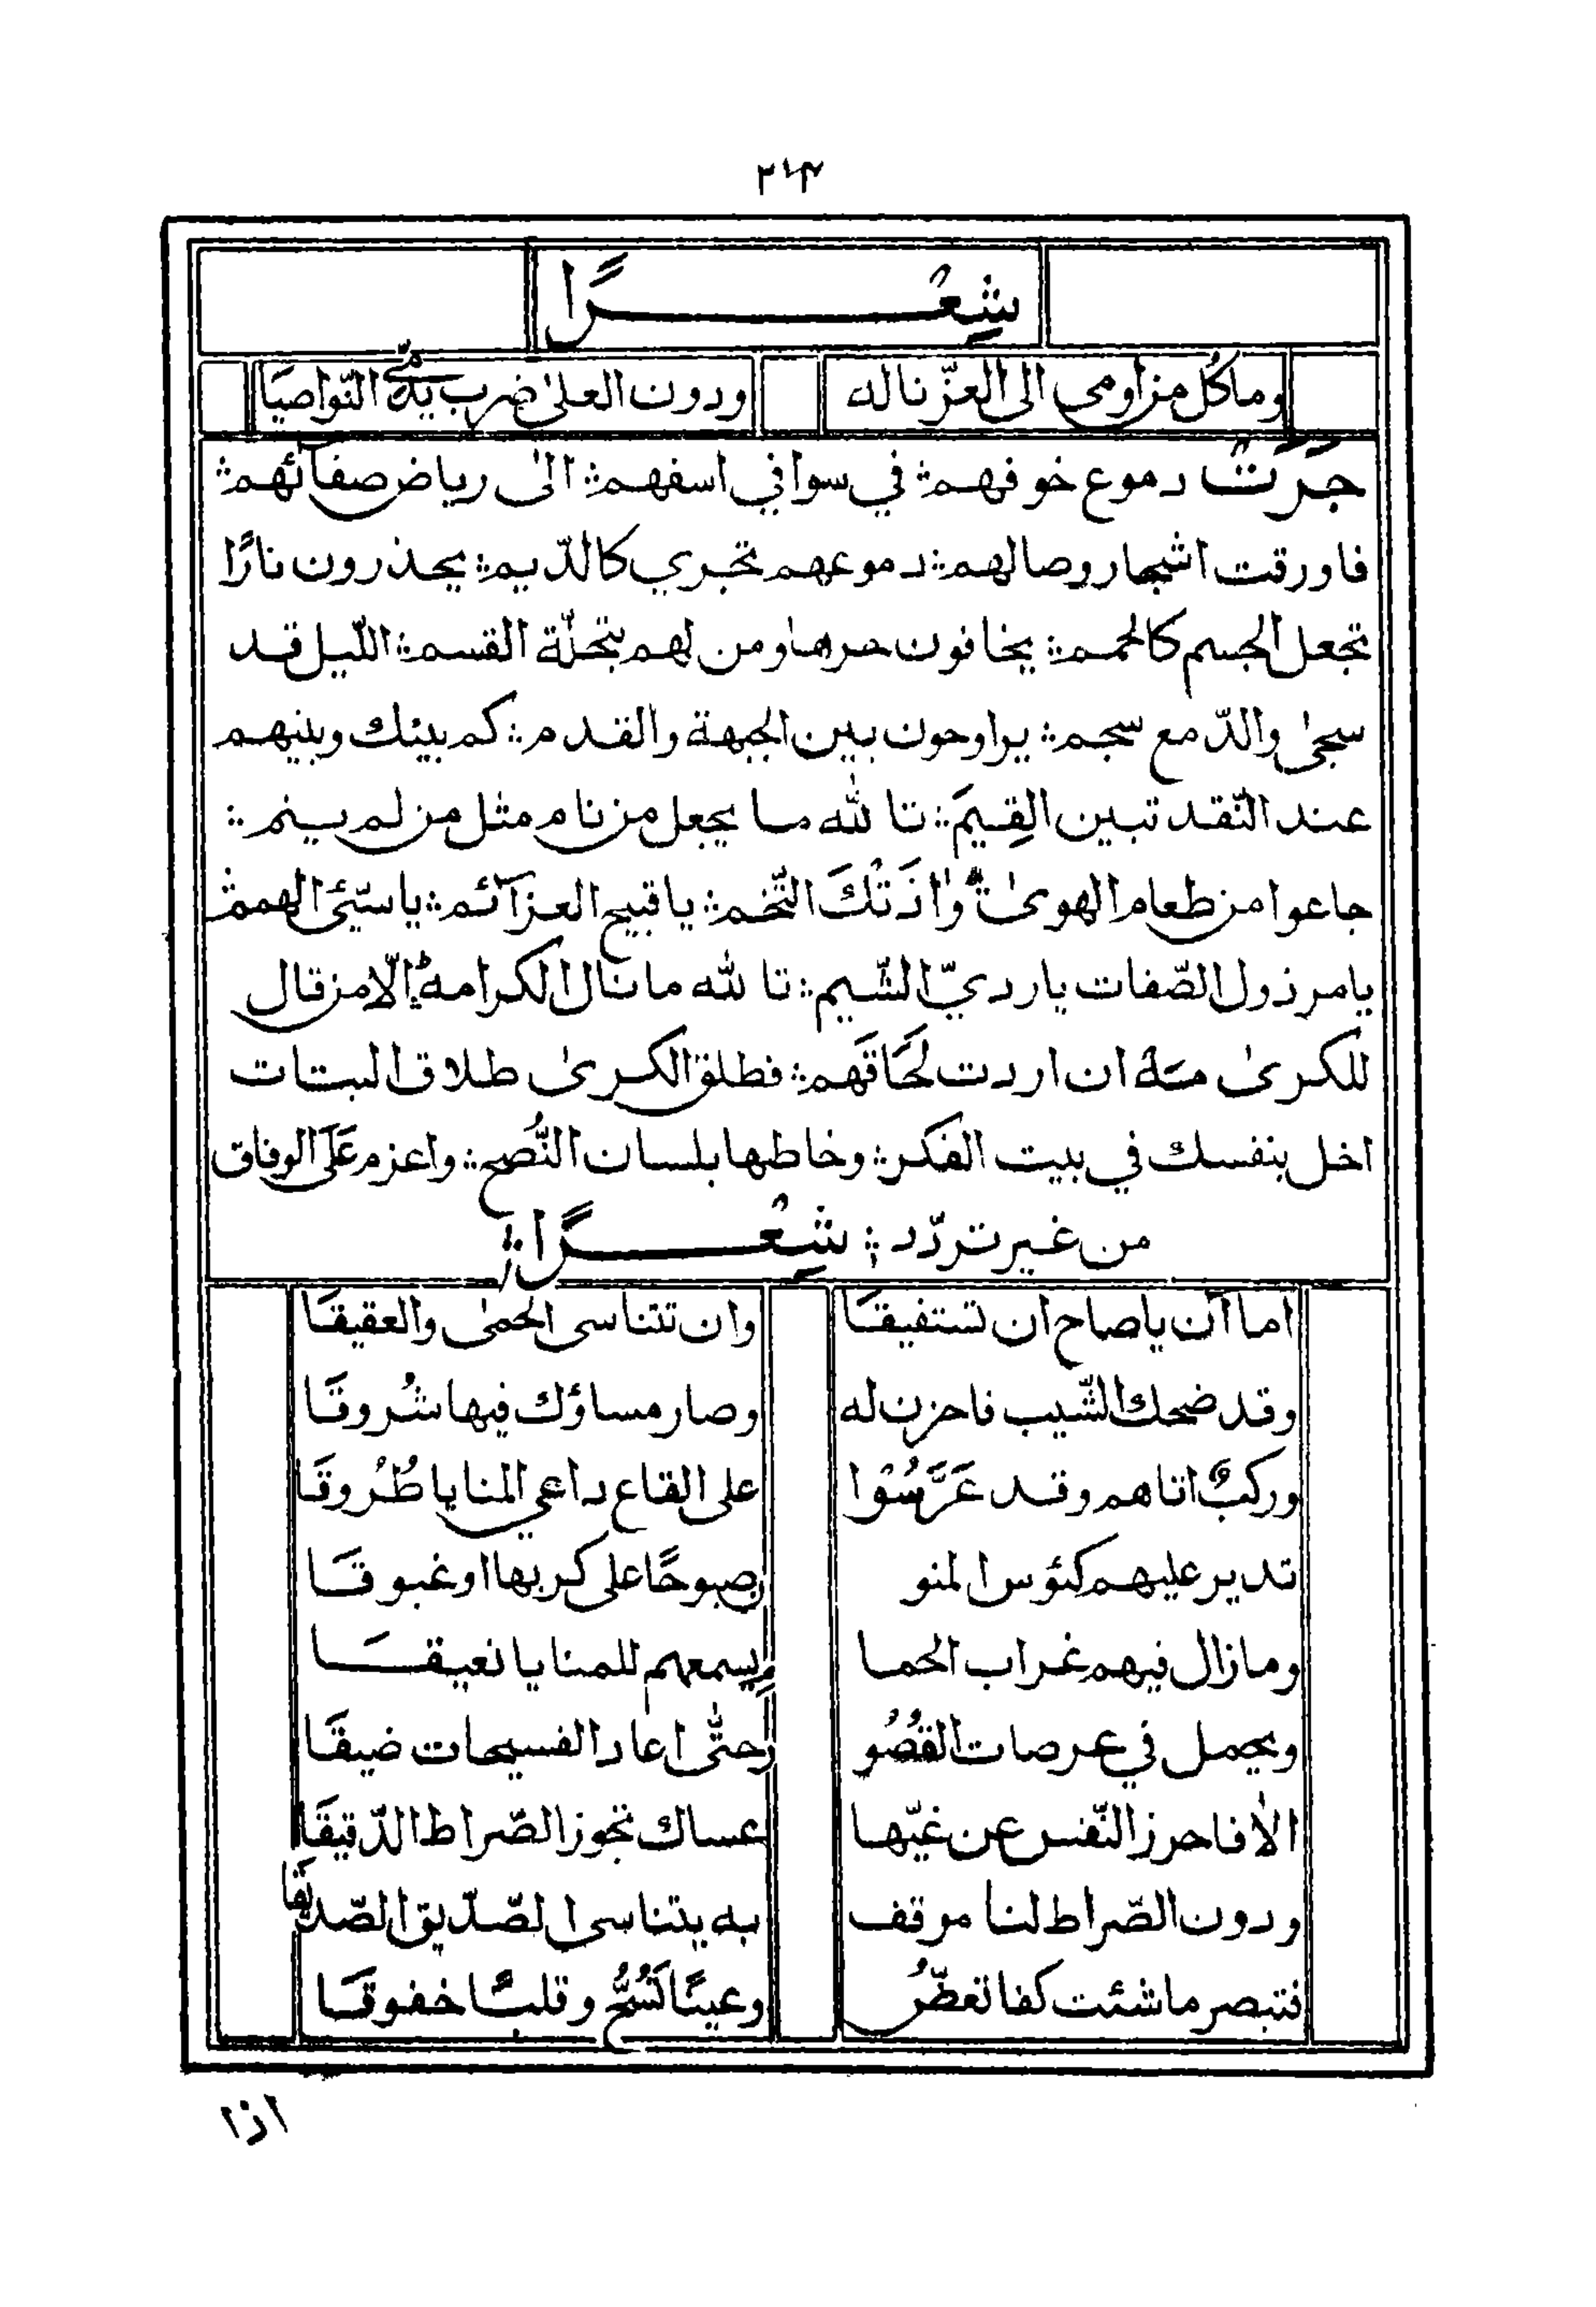 ٣١٤
شِعْرًا
وما كُل من اومى الى العزّ ناله ودون العلىٰ ضرب يدمّى النّواصيَا
جَرَتْ دموع خوفهم؞ في سواقي اسفهم؞ الىٰ رياض صفآئهم؞
فاورقت اشجار وصالهم؞ دموعهم تجري كالدّيم؞ يحذرون نارًا
تجعل الجسم كالحمم؞ يخافون حرها ومن لهم بتحلّة القسم؞ اللّيل قد
سجىٰ والدّمع سجم؞ يراوحون بين الجبهة والقدم؞ كم بينك وبينهم
عند النّقد تبين القِيَم؞ تالله ما يجعل من نام مثل من لم ينم؞
جاعوا من طعام الهوىٰ وَاٰذَتْكَ التّخم؞ يا قبيح العزآئم؞ يا سيّئ الهمم؞
يا مرذول الصّفات يا رديّ الشّيم؞ تالله ما نال الكرامة؞ الّا من قال
للكرىٰ مَهْ ان اردت لَحَاقَهم؞ فطلق الكرىٰ طلاق البتات
اخل بنفسك في بيت الفكر؞ وخاطبها بلسان النُّصح؞ واعزم عَلَى الوفاق
من غير تردّد؞ شِعْرًا؞
اما آن يا صاح ان تستفيقَا وان تتناسى الحمىٰ والعقيقَا
وقد ضحك الشّيب فاحزن له وصار مساؤك فيها شُروقَا
وركبٌ اتاهم وقد عَرَّسُوْا على القاع داعي المنايا طُرُوقَا
تدير عليهم كئوس المنو ن صبوحًا على كربها او غبوقَا
وما زال فيهم غراب الحما م يسمعهم للمنايا نعيقَا
ويحمل في عرصات القُصُو ر حتّٰى اعاد الفسيحات ضيقَا
الاٰ فاحرز النّفس عن غيّها عساك تجوز الصّراط الدّقيقَا
ودون الصّراط لنا موقف به يتناسى الصّديق الصّديقا
فتبصر ما شئت كفا تعضّ وعينًا تَسُحُّ وقلبًا خفوقَا
اذا